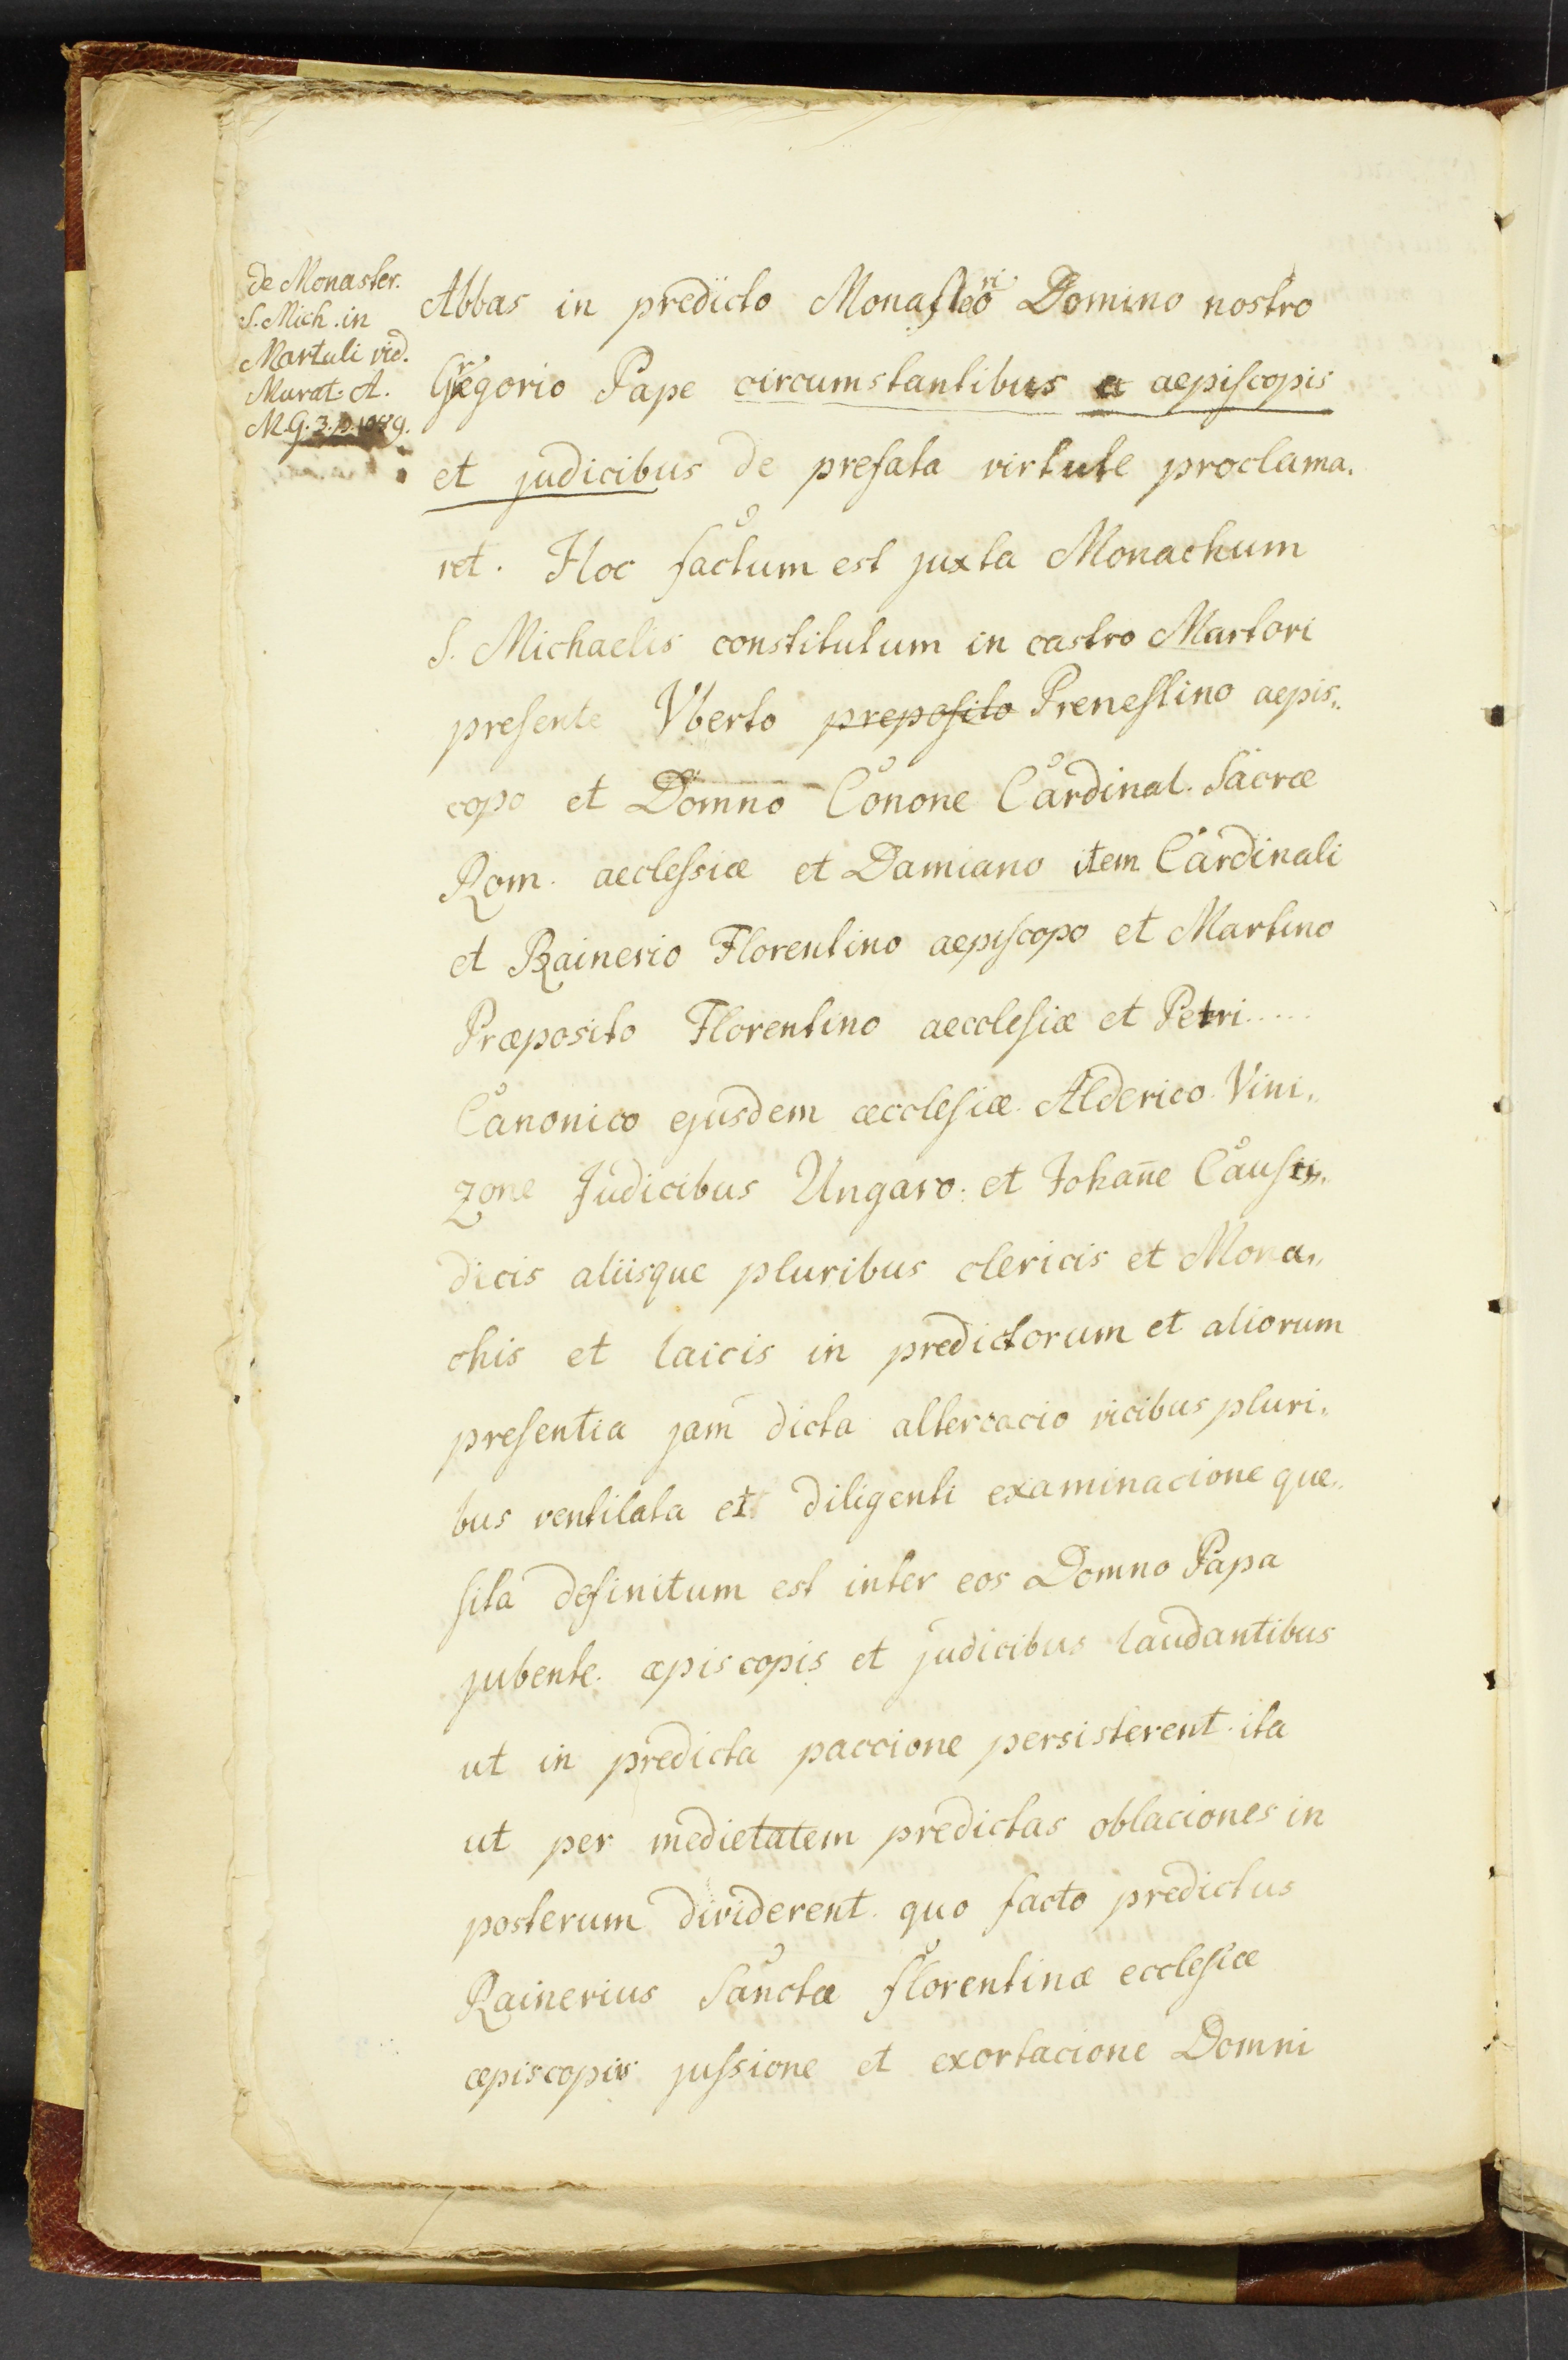 de Monaster.
S. Mich. in
Martuli vid.
Murat. A.
M.G. 3. p. 1089.
Abbas in predicto Monasterio Domino nostro
Gregorio Pape circumstantibus aepiscopis
et judicibus de prefata virtute proclama,
ret. Hoc factum est juxta Monachum
S. Michaelis constitutum in castro Martori
presente Vberto preposito Prenestino aepis,,
copo et Domno Conone Cardinal. Sacræ
Rom. aeclessiæ et Damiano item Cardinali
et Rainerio Florentino aepiscopo et Martino
Præposito Florentino aecclesiæ et Petri.....
Canonico ejusdem æcclesiæ. Alderico. Vini,,
zone Judicibus Ungaro. et Johan̄e Causi,,
dicis aliisque pluribus clericis et Mona,,
chis et laicis in predictorum et aliorum
presentia jam dicta altercacio vicibus pluri,,
bus ventilata et diligenti examinacione que,,
sita definitum est inter eos Domno Papa
jubente. æpiscopis et judicibus laudantibus
ut in predicta paccione persisterent. ita
ut per medietatem predictas oblaciones in
posterum dividerent. quo facto predictus
Rainerius Sanctæ florentinæ ecclesiæ
æpiscopis jussione et exortacione Domni